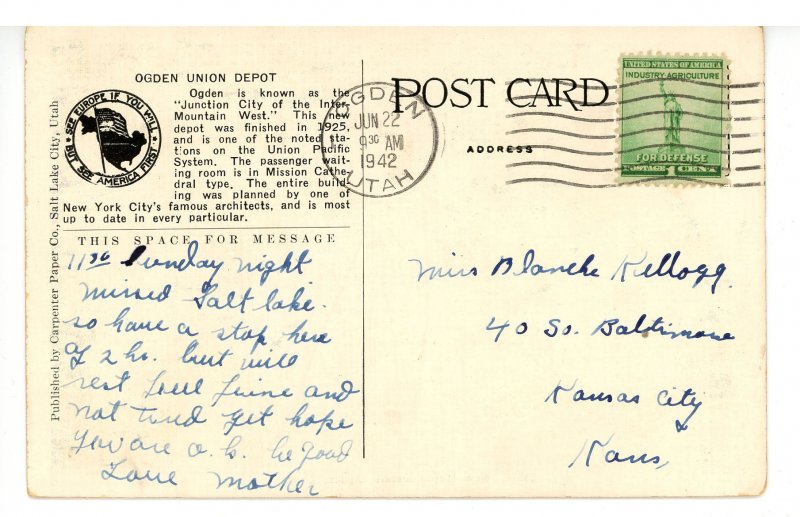 OGDEN UNION DEPOT
Ogden is known as the
"Junction City of the Inter-
Mountain West." This new
depot was finished in 1925,
and is one of the noted sta-
tions on the Union Pacific
System. The passenger wait-
ing room is in Mission Cathe-
dral type. The entire build-
ing was planned by one of
New York City's famous architects, and is most
up to date in every particular.
SEE EUROPE IF YOU WILL
BUT SEE AMERICA FIRST
THIS SPACE FOR MESSAGE
Published by Carpenter Paper Co., Salt Lake City, Utah
11 30 Sunday night
missed Salt lake.
so have a stop here
of 2 hr. but will
rest feel fine and
not tired yet hope
you are o.k. be good
Love Mother
POST CARD
ADDRESS
OGDEN
JUN 22
9 30 AM
1942
UTAH
UNITED STATES OF AMERICA
INDUSTRY AGRICULTURE
FOR DEFENSE
POSTAGE 1 CENT
Miss Blanche Kellogg.
40 So. Baltimore
Kansas City
Kans,